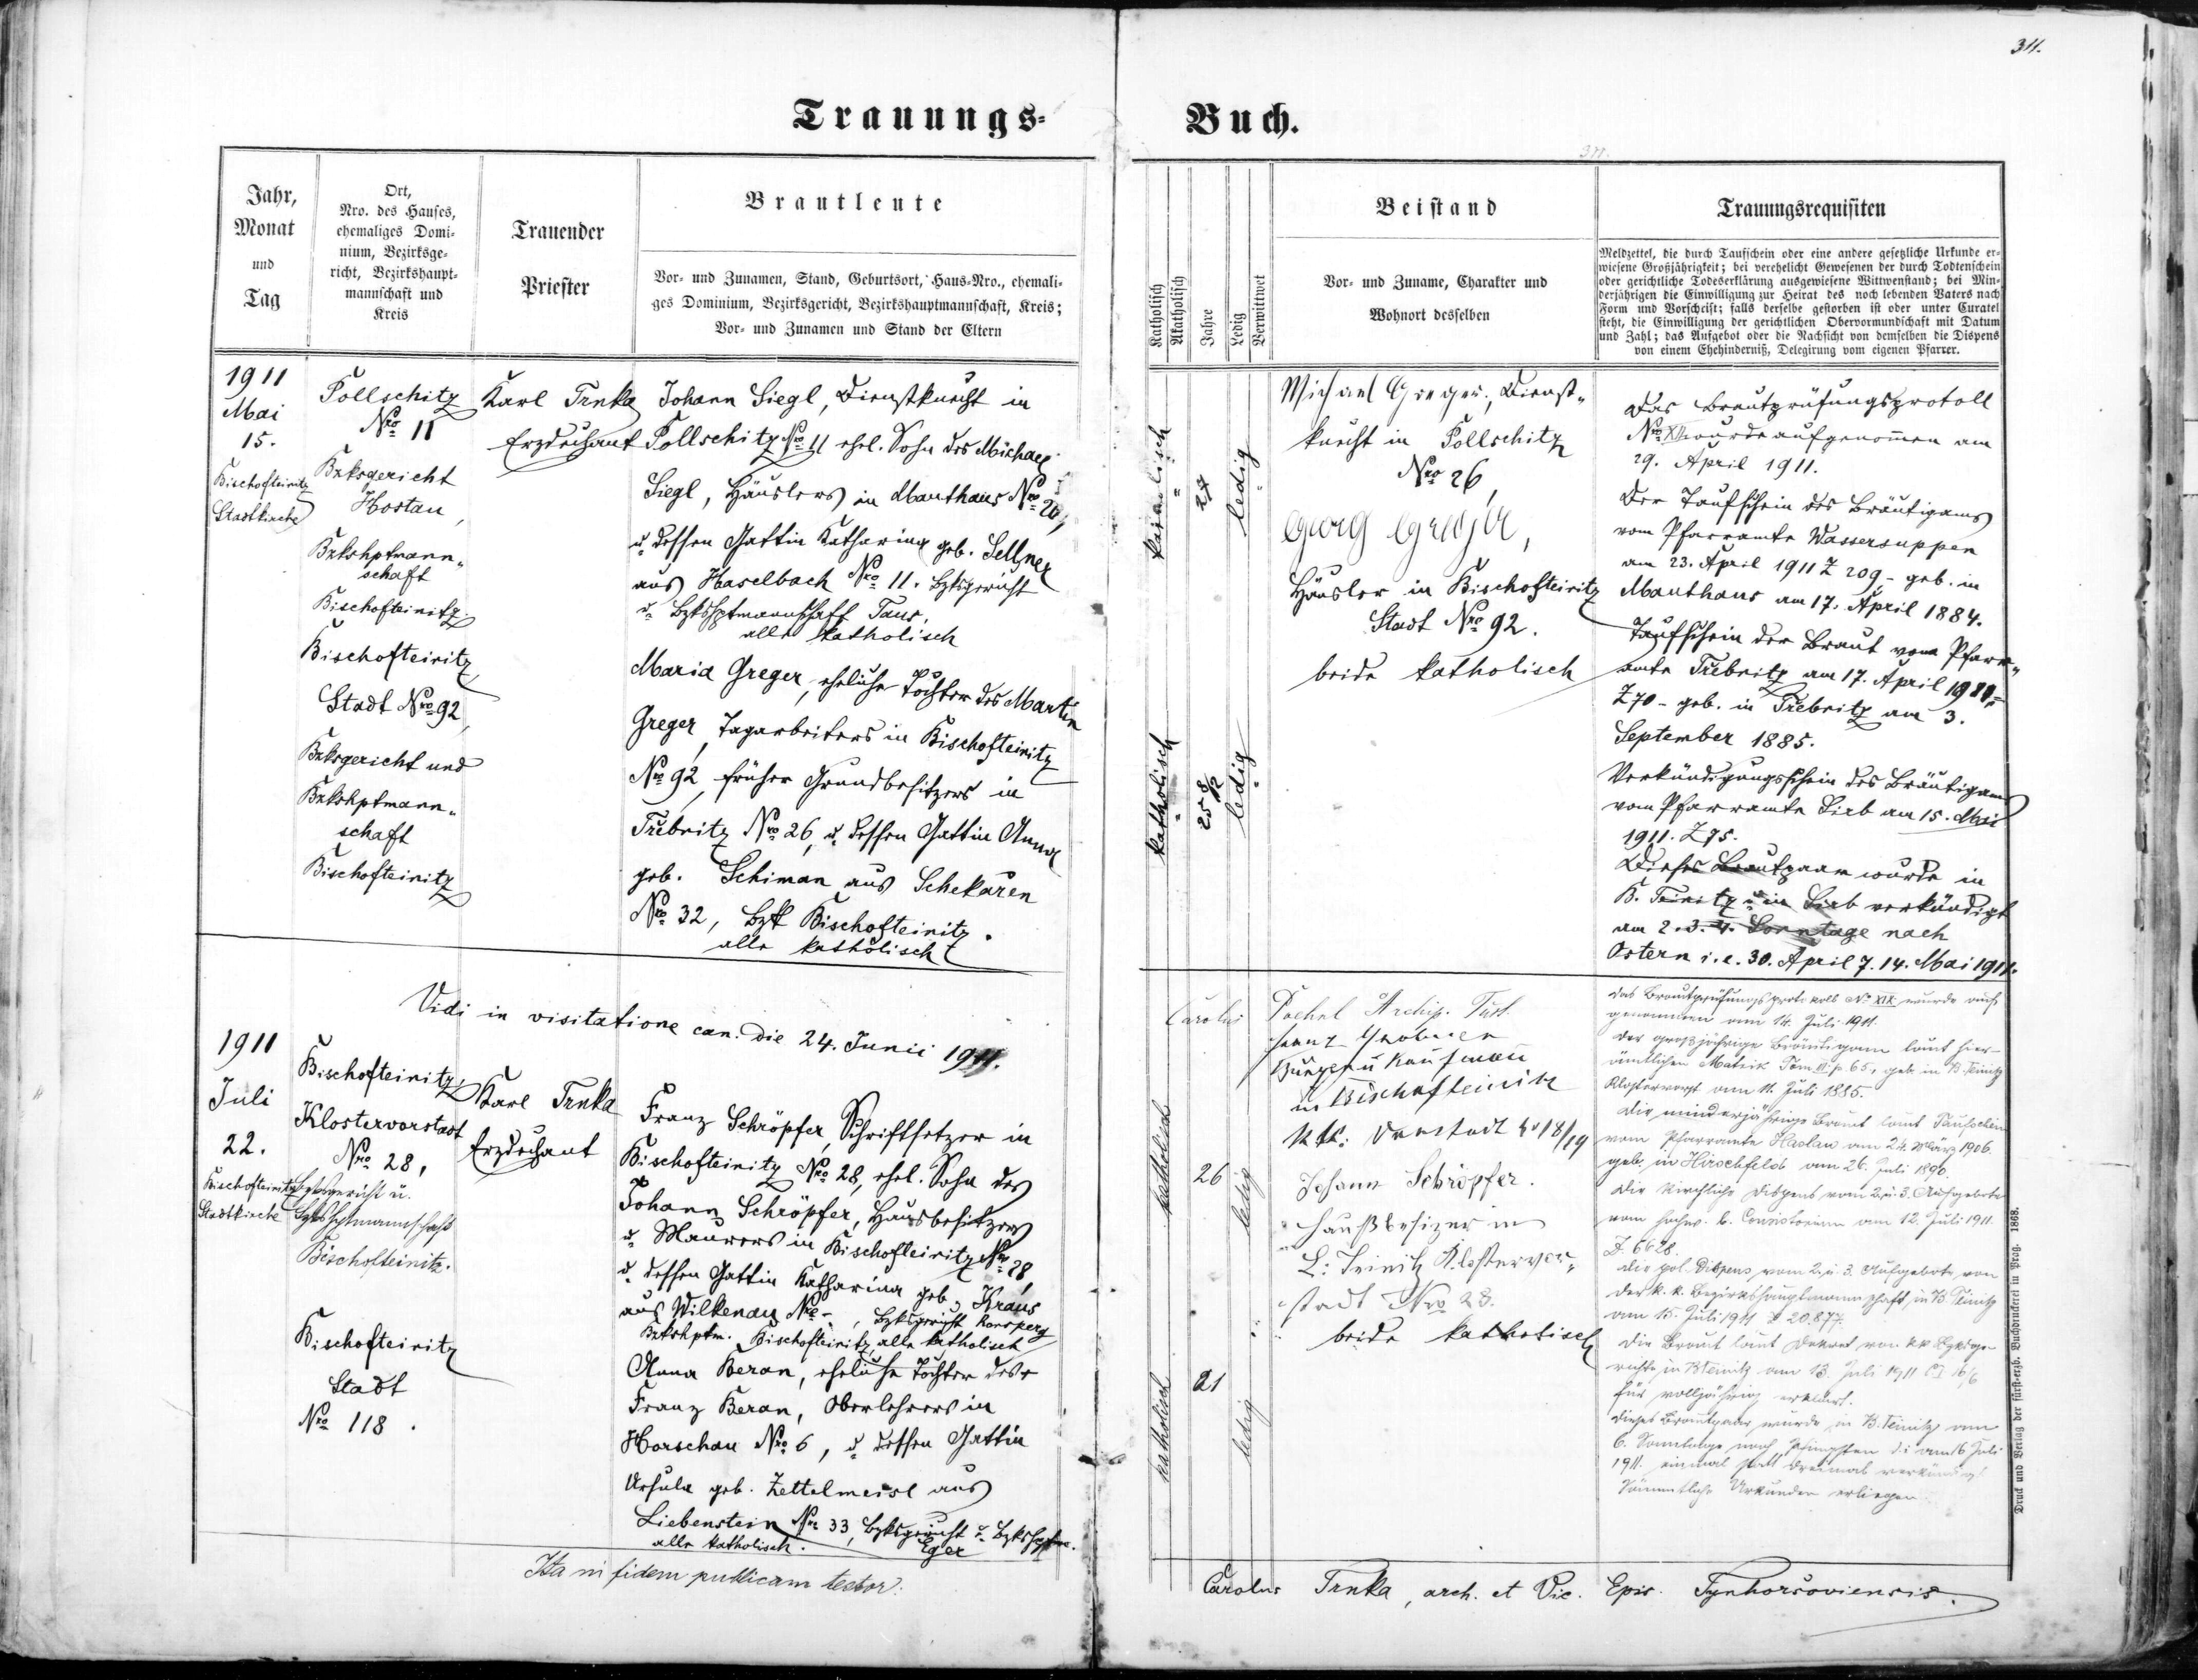 311.
Trauungs- Buch.
311.
Jahr,
Monat
und
Tag
Ort,
Nro. des Hauses,
ehemaliges Domi-
nium, Bezirksge-
richt, Bezirkshaupt-
mannschaft und
Kreis
Trauender
Priester
Brautleute
Vor- und Zunamen, Stand, Geburtsort, Haus-Nro., ehemali-
ges Dominium, Bezirksgericht, Bezirkshauptmannschaft, Kreis;
Vor- und Zunamen und Stand der Eltern
Katholisch
Akatholisch
Jahre
Ledig
Verwittwet
Beistand
Vor- und Zuname, Charakter und
Wohnort desselben
Trauungsrequisiten
Meldzettel, die durch Taufschein oder eine andere gesetzliche Urkunde er-
wiesene Großjährigkeit; bei verehelicht Gewesenen der durch Todtenschein
oder gerichtliche Todeserklärung ausgewiesene Wittwenstand; bei Min-
derjährigen die Einwilligung zur Heirat des noch lebenden Vaters nach
Form und Vorschrift; falls derselbe gestorben ist oder unter Curatel
steht, die Einwilligung der gerichtlichen Obervormundschaft mit Datum
und Zahl; das Aufgebot oder die Nachsicht von demselben die Dispens
von einem Ehehinderniß, Delegirung vom eigenen Pfarrer.
1911
Mai
15.
Bischofteinitz
Stadtkirche
Pollschitz
Nro 11
Bzksgericht
Hostau,
Bzkshptmann-
schaft
Bischofteinitz.
Bischofteinitz
Stadt Nro 92,
Bzksgericht und
Bzkshptmann-
schaft
Bischofteinitz
Karl Trnka
Erzdechant
Johann Siegl, Dienstknecht in
Pollschitz Nro 11 ehel. Sohn des Michael
Siegl, Häuslers in Mauthaus Nro 20,
u. dessen Gattin Katharina geb. Sellner
aus Haselbach Nro 11. Bzksgericht
u. Bzkshptmannschaft Taus,
alle katholisch
Maria Greger, eheliche Tochter des Martin
Greger, Tagarbeiters in Bischofteinitz
Nro 92, früher Grundbesitzers in
Třebnitz Nro 26, u. dessen Gattin Anna
geb. Schiman aus Schekařen
Nro 32, Bzk Bischofteinitz.
alle katholisch
katholisch
27
ledig
katholisch
25 8/12
ledig
Michael Greger, Dienst-
knecht in Pollschitz
Nro 26,
Georg Greger,
Häusler in Bischofteinitz
Stadt Nro 92.
beide katholisch
Das Brautprüfungsprotoll
Nro XII wurde aufgenommen am
29. April 1911.
Der Taufschein des Bräutigams
vom Pfarramte Wassersuppen
am 23. April 1911 Z 209 - geb. in
Mauthaus am 17. April 1884.
Taufschein der Braut vom Pfarr-
amte Třebnitz am 17. April 1911
Z 70 - geb. in Třebnitz am 3.
September 1885.
Verkündigungsschein des Bräutigams
vom Pfarramte Sirb am 15. Mai
1911. Z 75.
Dieses Brautpaar wurde in
B. Teinitz u. in Sirb verkündigt
am 2. 3. 4. Sonntage nach
Ostern i. e. 30. April 7. 14. Mai 1911.
Vidi in visitatione can. die 24. Junii 1911.
Carolus
1911
Juli
22.
Bischofteinitz
Stadtkirche
Bischofteinitz,
Klostervorstadt
Nro 28,
Bzksgericht u.
Bzkshptmannschaft
Bischofteinitz.
Bischofteinitz
Stadt
Nro 118.
Karl Trnka
Erzdechant
Franz Schröpfer, Schriftsetzer in
Bischofteinitz Nro 28, ehel. Sohn des
Johann Schröpfer, Hausbesitzers
u. Maurers in Bischofteinitz Nro 28,
u. dessen Gattin Katharina geb. Kraus
aus Wilkenau Nro -, Bzksgericht Ronsperg
Bzkshptm. Bischofteinitz, alle katholisch
Anna Beran, eheliche Tochter des
Franz Beran, Oberlehrers in
Horschau Nro 6, u. dessen Gattin
Ursula geb. Zettelmeisl aus
Liebenstein Nro 33, Bzksgericht u. Bzkshptm.
alle katholisch. Eger
katholisch
26
ledig
katholisch
21
ledig
Franz
Bürger u Kaufmann
in Bischofteinitz
Vorstadt No 18/19
Johann Schröpfer.
Haußbesizer in
B: Teinitz Klostervor-
stadt Nro 28.
beide katholisch
Das Brautprüfungsprotokoll No XIX wurde auf-
genommen am 14. Juli 1911.
Der großjährige Bräutigam laut hier-
ämtlichen Matrik Tom. III. p. 65, geb. in B. Teinitz
Klostervorst am 11. Juli 1885.
Die minderjährige Braut laut Taufschein
vom Pfarramte Haslau am 24. März 1906.
geb. in Hirschfeld am 26. Juli 1890.
Die kirchliche Dispens vom 2. u. 3. Aufgebote
vom hochw. b. Consistorium am 12. Juli 1911.
Z. 6628.
Die pol. Dispens vom 2. u. 3. Aufgebote von
der k. k. Bezirkshauptmannschaft in B. Teinitz
am 15. Juli 1911 Z 20.877.
Die Braut laut Dekret von kk Bzksge-
richte in BTeinitz am 13. Juli 1911
für volljährig erklärt.
Dieses Brautpaar wurde in B. Teinitz am
6. Sonntage nach Pfingsten d. i. am 16 Juli
1911. einmal statt dreimal verkündigt
Sämmtliche Urkunden erliegen.
Ita in fidem publicam testor:
Carolus Trnka, arch. et Vic. Epis. Tynhoršoviensis.
Druck und Verlag der fürst-erzb. Buchdruckerei in Prag. 1868.